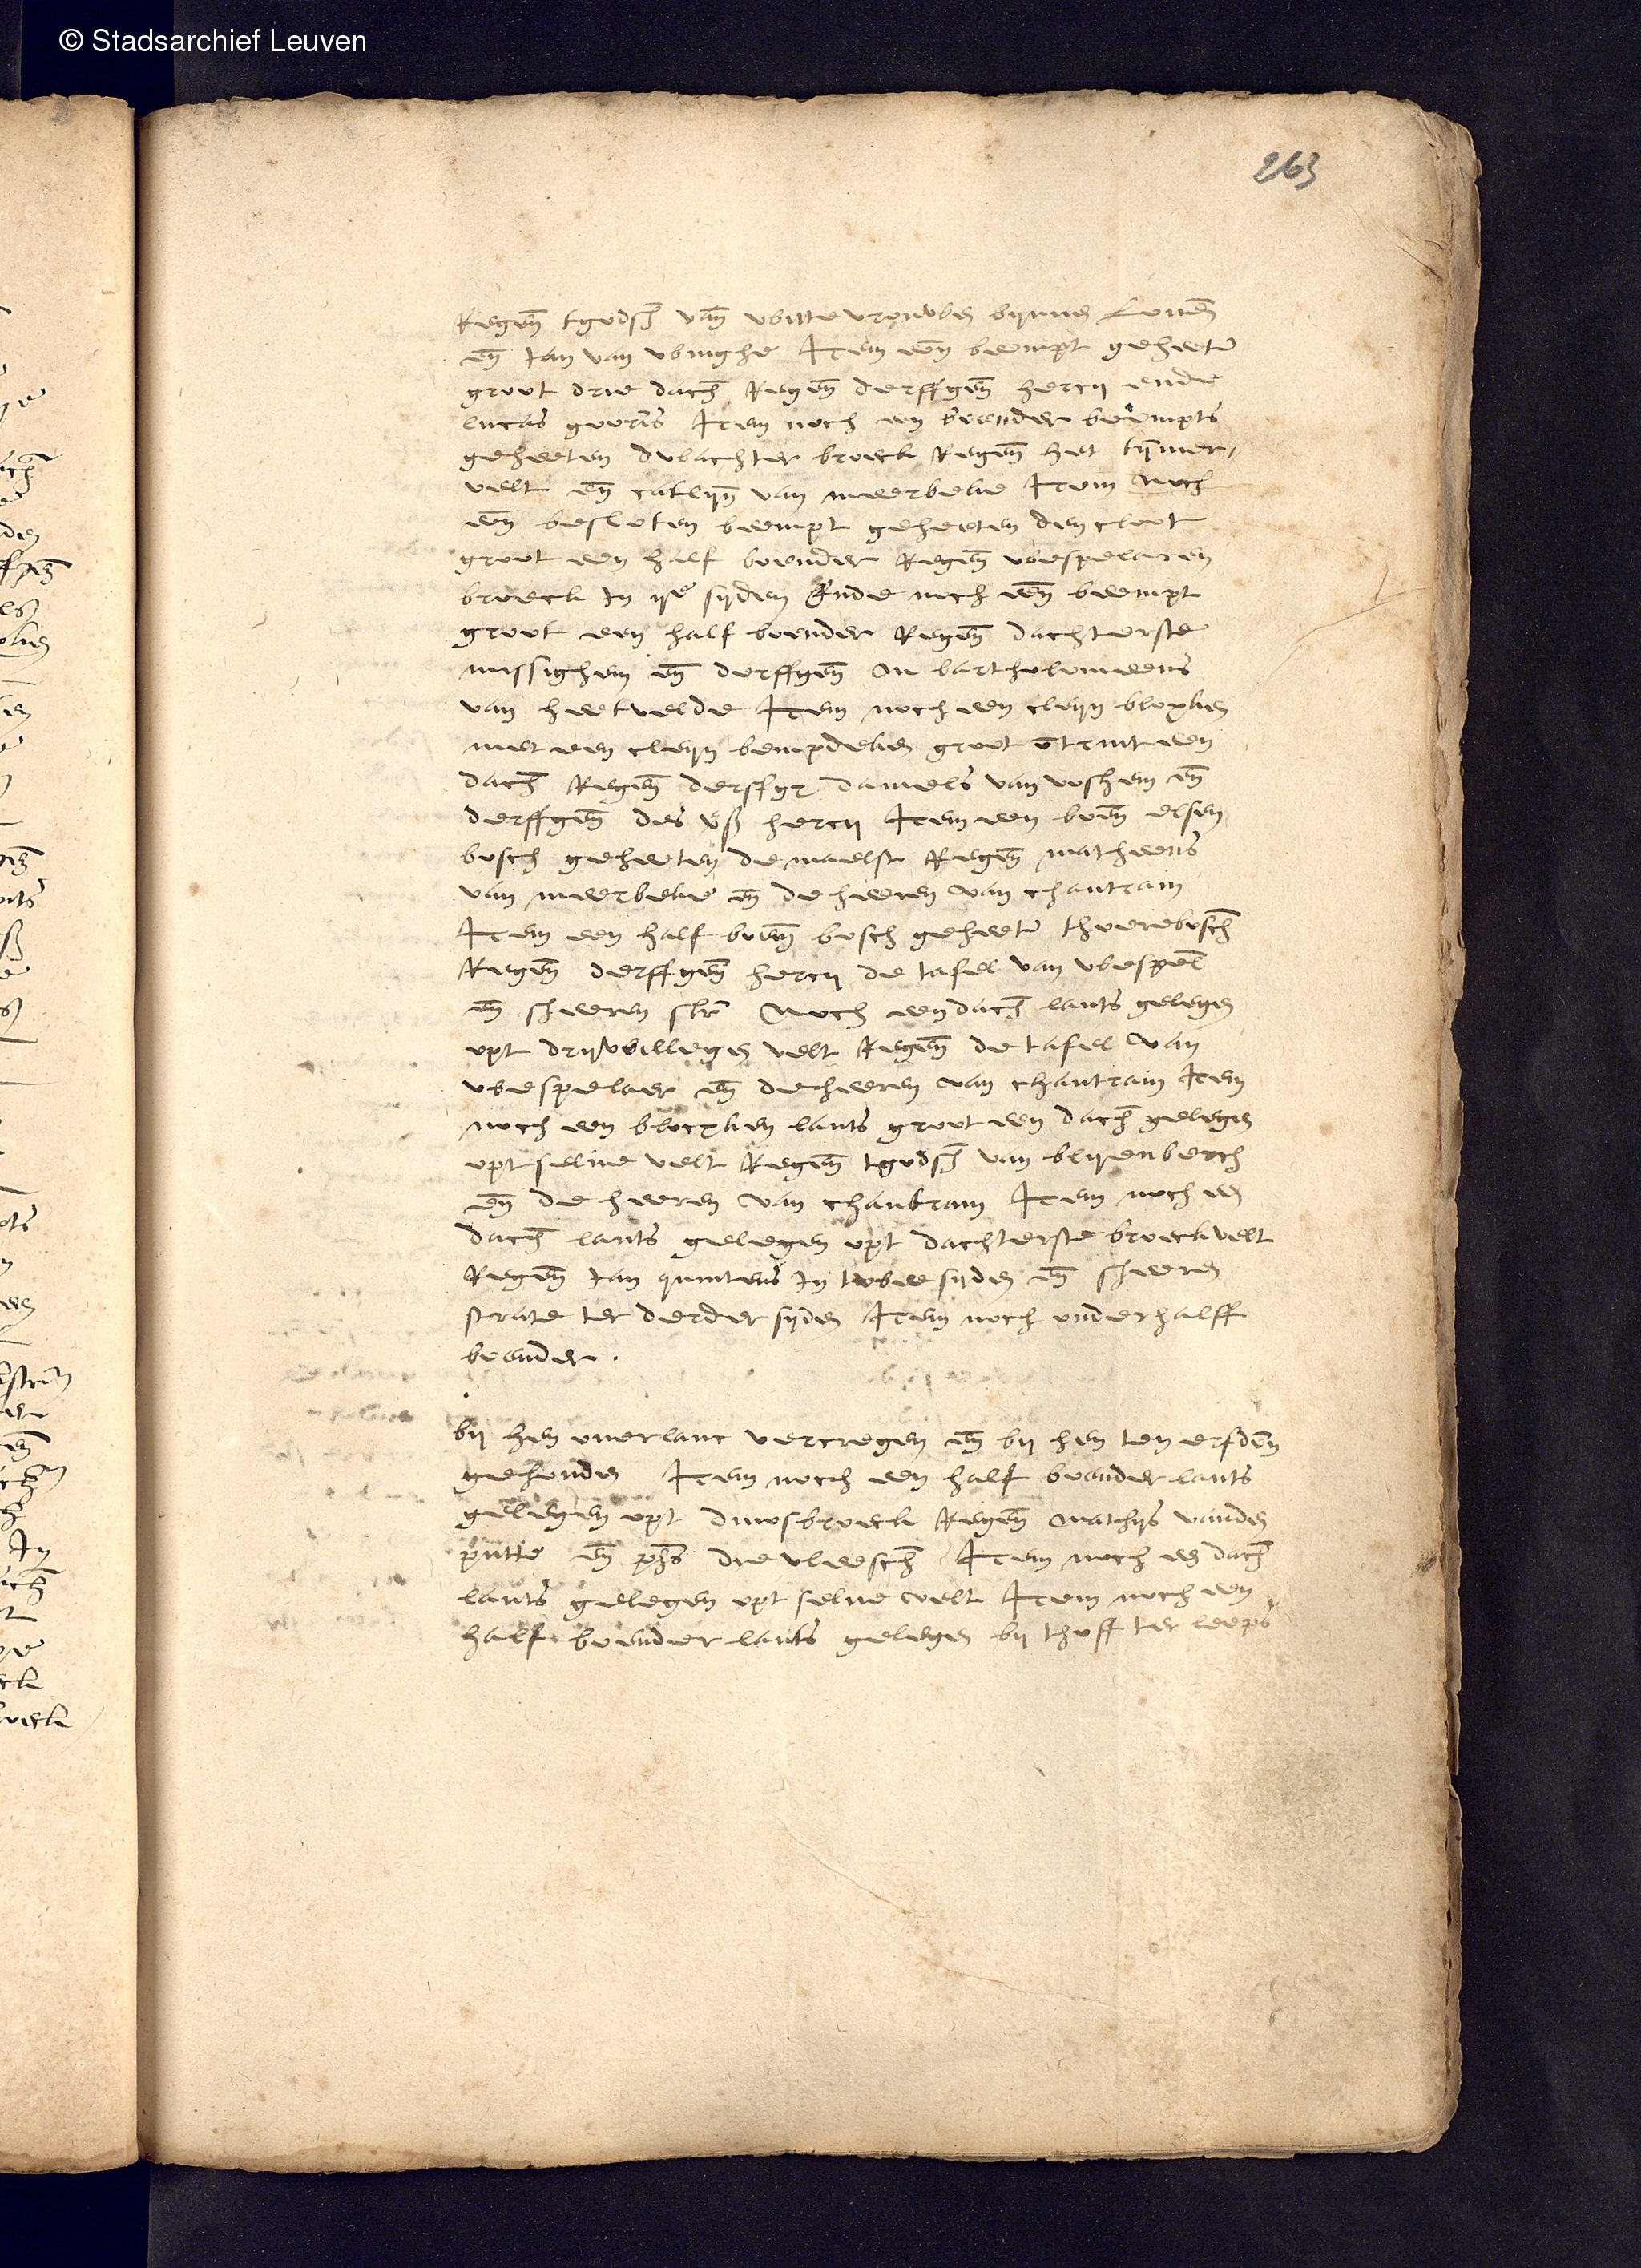 © Stadsarchief Leuven
263
Regen tgodsh van witte vrouwen bynnen Loven
en Jan van winghe Item een beempt geheeten
groot drie dach Regen derffgen hercy ende
lucas goorts Item noch een boender beempts
geheeten dwachter broeck Regen het tymer
velt en catlijn van meerbeke Item noch
een besloten beempt geheeten den cloot
groot een half boender Regen wespelaren
broeck In ije sijden Ende noch een beempt
groot een half boender Regen dachterste
missighem en derffgen bartholomeeus
van heetvelde Item noch een cleyn bloxken
met een cleyn bempdeken groot omtrint een
dach Regen derffgen daneels van voshem en
derffgen des hercy Item een boen elsen
bosch geheeten de maelst Regen matheeus
van meerbeke en de heeren van chantrain
Item een half boen bosch geheeten thoerebosch
Regen derffgen hercy de tafel van wespel
en sheeren str Noch een dach lants gelegen
opt drywillegen velt Regen de tafel van
wespelaer en de heeren van chantrain Item
noch een blocxken lants groot een dach gelegen
opt selve velt Regen tgodsh van blyenberch
en de heeren van chantrain Item noch een
dach lants gelegen opt dachterste broeckvelt
Regen Jan quintens In twee sijden en sheeren
strate ter derder sijden Item noch onderhalff
boender .
bij hen overlanc vercregen en bij hen ten erfden
gehouden Item noch een half boender lants
gelegen opt dmosbroeck Regen Mathijs vanden
putte en phs die vleesch Item noch een dach
lants gelegen opt selve velt Item noch een
half boender lants gelegen bij thoff ter leeps